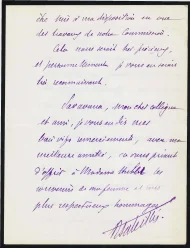 être mis à ma disposition en vue
des travaux de notre Commission.
Cela nous serait très précieux,
et personnellement je vous en serais
très reconnaissant.
Recevez, mon cher collègue
et ami, je vous en prie, mes
remerciements, avec mon
meilleur, en vous priant
d'offrir à Madame les
souvenirs de ma femme et mes
plus respectueux hommages.